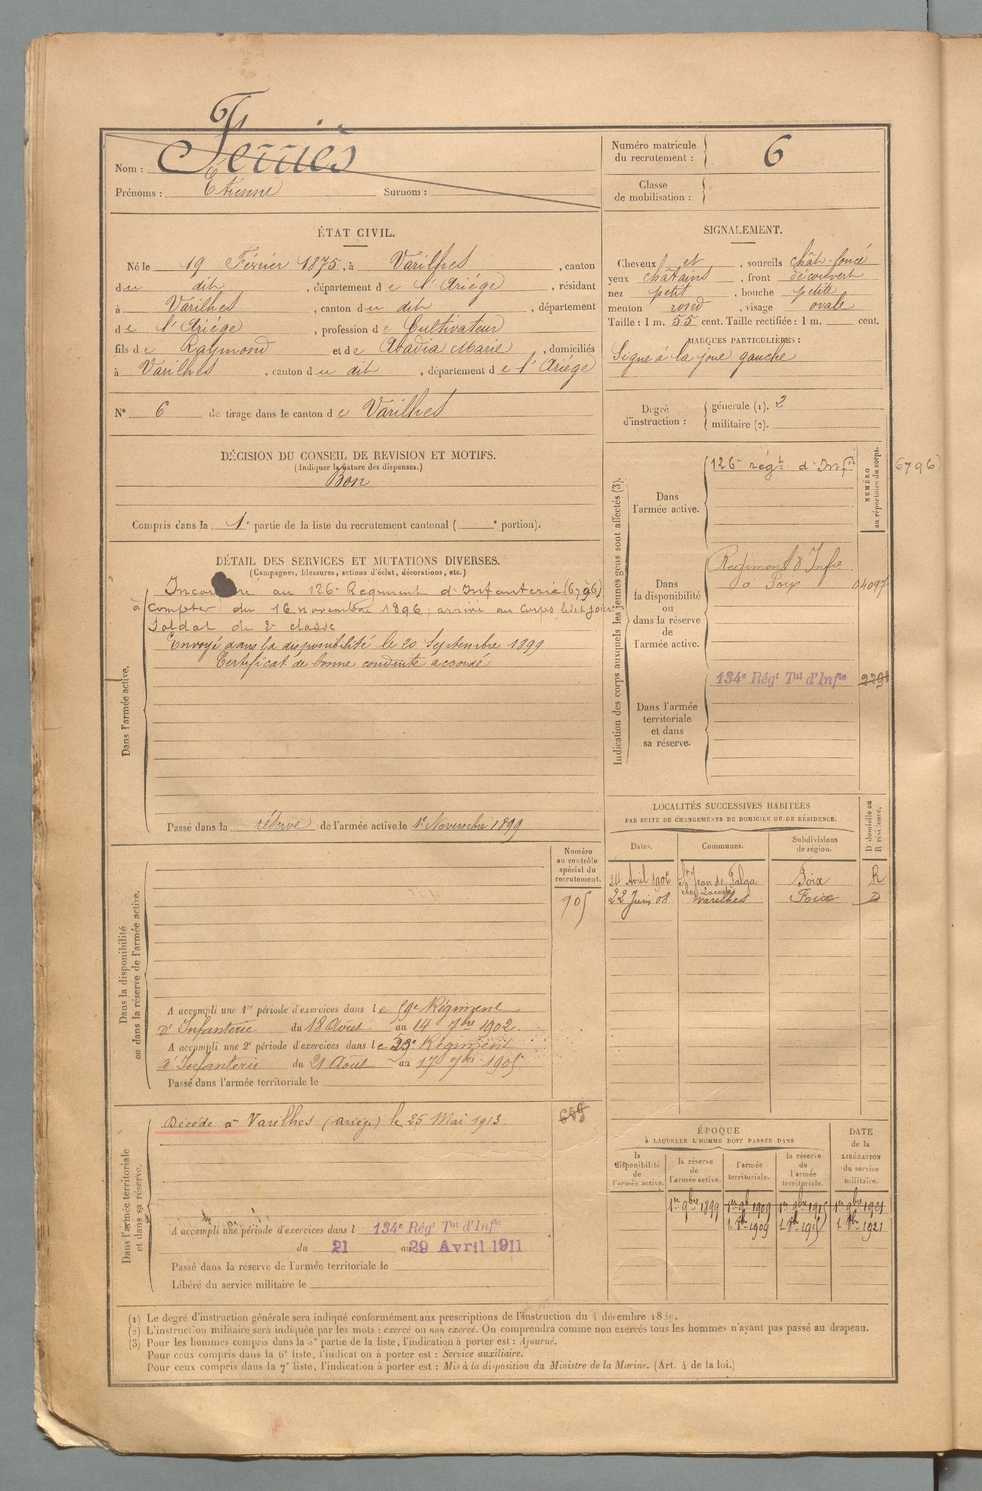 Nom : Ferriès
Prénoms : Etienne Surnom :
Numéro matricule du recrutement : 6
Classe de mobilisation :
ÉTAT CIVIL.
Né le 19 Février 1875, à Varilhes, canton
du dit, département de l'Ariège, résidant
à Varilhes, canton du dit, département
de l'Ariège, profession de Cultivateur
fils de Raymond et de Abadia Marie, domiciliés
à Varilhes, canton du dit, département de l'Ariège
N° 6 de tirage dans le canton de Varilhes
SIGNALEMENT.
Cheveux et, sourcils chât. foncé
yeux châtains, front découvert
nez petit, bouche petite
menton rond, visage ovale
Taille : 1 m. 55 cent. Taille rectifiée : 1 m. cent.
MARQUES PARTICULIÈRES :
Signe à la joue gauche
Degré d'instruction : générale (1). 2
militaire (2).
DÉCISION DU CONSEIL DE REVISION ET MOTIFS.
(Indiquer la nature des dispenses.)
Bon
Compris dans la 1e partie de la liste du recrutement cantonal ( e portion).
Indication des corps auxquels les jeunes gens sont affectés (3).
NUMÉRO au répertoire du corps.
Dans l'armée active.
126e régt d'Inf. 6796
Dans la disponibilité ou dans la réserve de l'armée active.
Régiment d'Infie
à Foix 04097
Dans l'armée territoriale et dans sa réserve.
134e Régt Tal d'Infie
DÉTAIL DES SERVICES ET MUTATIONS DIVERSES.
(Campagnes, blessures, actions d'éclat, décorations, etc.)
Dans l'armée active.
au 126e Régiment d'Infanterie (6796) à
compter du 16 novembre 1896, arrivé au corps le dit jour
Soldat de 2e classe
Envoyé dans la disponibilité le 20 Septembre 1899
Certificat de bonne conduite accordé
Passé dans la réserve de l'armée active le 1er Novembre 1899
Numéro au contrôle spécial du recrutement.
905
LOCALITÉS SUCCESSIVES HABITÉES
PAR SUITE DE CHANGEMENTS DE DOMICILE OU DE RÉSIDENCE.
D domicile ou R résidence.
Dates. Communes. Subdivisions de région.
Avril 1906 St Jean de Falga Foix R
22 Juin 08 Varilhes Foix D
Dans la disponibilité ou dans la réserve de l'armée active.
A accompli une 1re période d'exercices dans le 59e Régiment
d'Infanterie du 18 Août au 14 7bre 1902.
A accompli une 2e période d'exercices dans le Régiment
d'Infanterie du 21 Août au 17 7bre 1905
Passé dans l'armée territoriale le
Dans l'armée territoriale et dans sa réserve.
Décédé à Varilhes (Ariège) le 25 Mai 1913.
A accompli une période d'exercices dans l 134e Régt Tal d'Infie
du 21 au 29 Avril 1911
Passé dans la réserve de l'armée territoriale le
Libéré du service militaire le
ÉPOQUE
À LAQUELLE L'HOMME DOIT PASSER DANS
DATE de la LIBÉRATION du service militaire.
la disponibilité de l'armée active.
la réserve de l'armée active.
l'armée territoriale.
la réserve de l'armée territoriale.
1er 9bre 1899 1er 9bre 1909 1er 9bre 1915 1er 9bre 1921
1909 1915 1921
(1) Le degré d'instruction générale sera indiqué conformément aux prescriptions de l'instruction du 4 décembre 1889.
(2) L'instruction militaire sera indiquée par les mots : exercé ou non exercé. On comprendra comme non exercés tous les hommes n'ayant pas passé au drapeau.
(3) Pour les hommes compris dans la 5e partie de la liste, l'indication à porter est : Ajourné.
Pour ceux compris dans la 6e liste, l'indication à porter est : Service auxiliaire.
Pour ceux compris dans la 7e liste, l'indication à porter est : Mis à la disposition du Ministre de la Marine. (Art. 4 de la loi.)